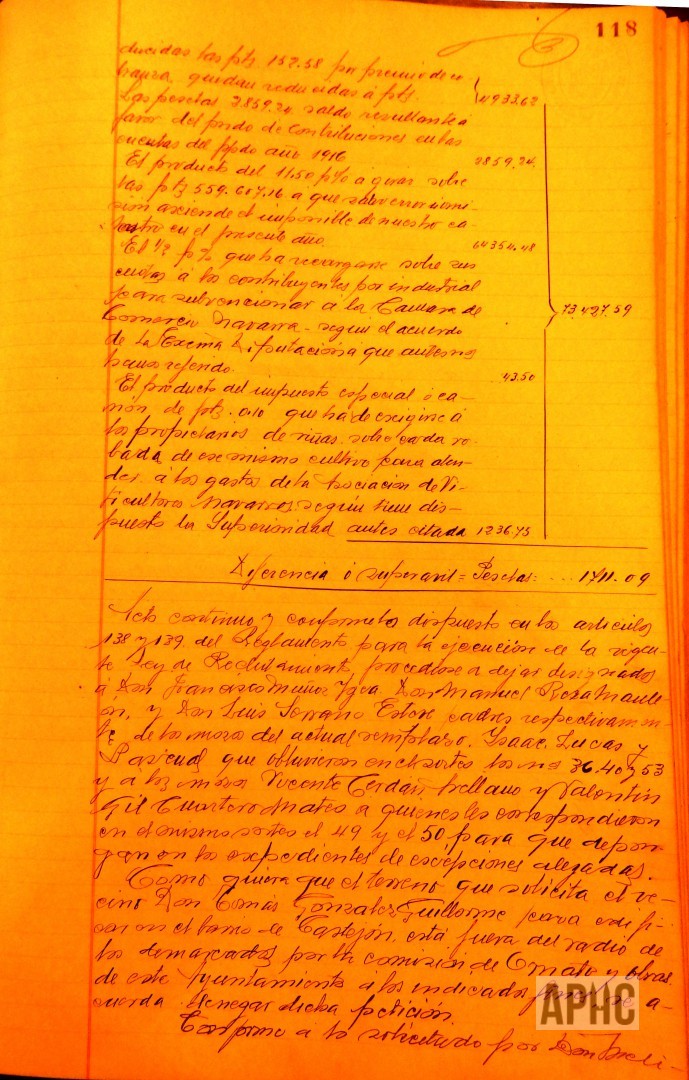 118
ducidas las ptz 152.58 por premio de co-
branza, quedan reducidas á ptz. 4933.62
Las pesetas 2859.24 saldo resultante á
favor del fondo de Contribuciones en las
cuentas del ppdo año 1916 2859.24.
El producto del 11.50 p% a girar sobre
las ptz 559.607.16 a que salvo error ú omi-
sión asciende el imponible de nuestro ca-
tastro en el presente año. 64354.48
El ½ p% que ha recargarse sobre sus
cuotas á los contribuyentes por industrial
para subvencionar á la Camara de
Comercio Navarra - según el acuerdo
de la Excma Diputación á que antes nos
hemos referido. 43.50
El producto del impuesto especial ó ca-
nón de ptz. 0.10 que ha de exigirse á
los propietarios de viñas sobre cada ro-
bada de ese mismo cultivo para aten-
der á los gastos de la Asociación de Vi-
ticultores Navarros, según tiene dis-
puesto la Superioridad antes citada 1236.75
73.427.59
Diferencia ó superavit = Pesetas: ... 1711.09
Acto continuo y conforme lo dispuesto en los articulos
138 y 139 del Reglamento para la ejecución de la vigen-
te Ley de Reclutamiento, procediose a dejar designados
á Don Francisco Muñoz Igea. Don Manuel Roza Maule-
ón, y Don Luis Serrano padres respectivamen-
te de los mozos del actual reemplazo, Isaac, Lucas y
Pascual que obtuvieron en el sorteo los nos 36.40 y 53
y á los mozos Vicente Cerdán Arellano y Valentin
Gil Cuartero Mateo a quienes les correspondieron
en el mismo sorteo el 49 y el 50, para que depon-
gan en los expedientes de excepciones alegadas.
Como quiera que el terreno que solicita el ve-
cino Don Tomás Gonzalez Guillorme para edifi-
car en el barrio de Castejón, está fuera del radio de
los demarcados por la comisión de Ornato y obras
de este Ayuntamiento á los indicados fines, se a-
cuerda denegar dicha petición.
Conforme á lo solicitado por Don
APHC